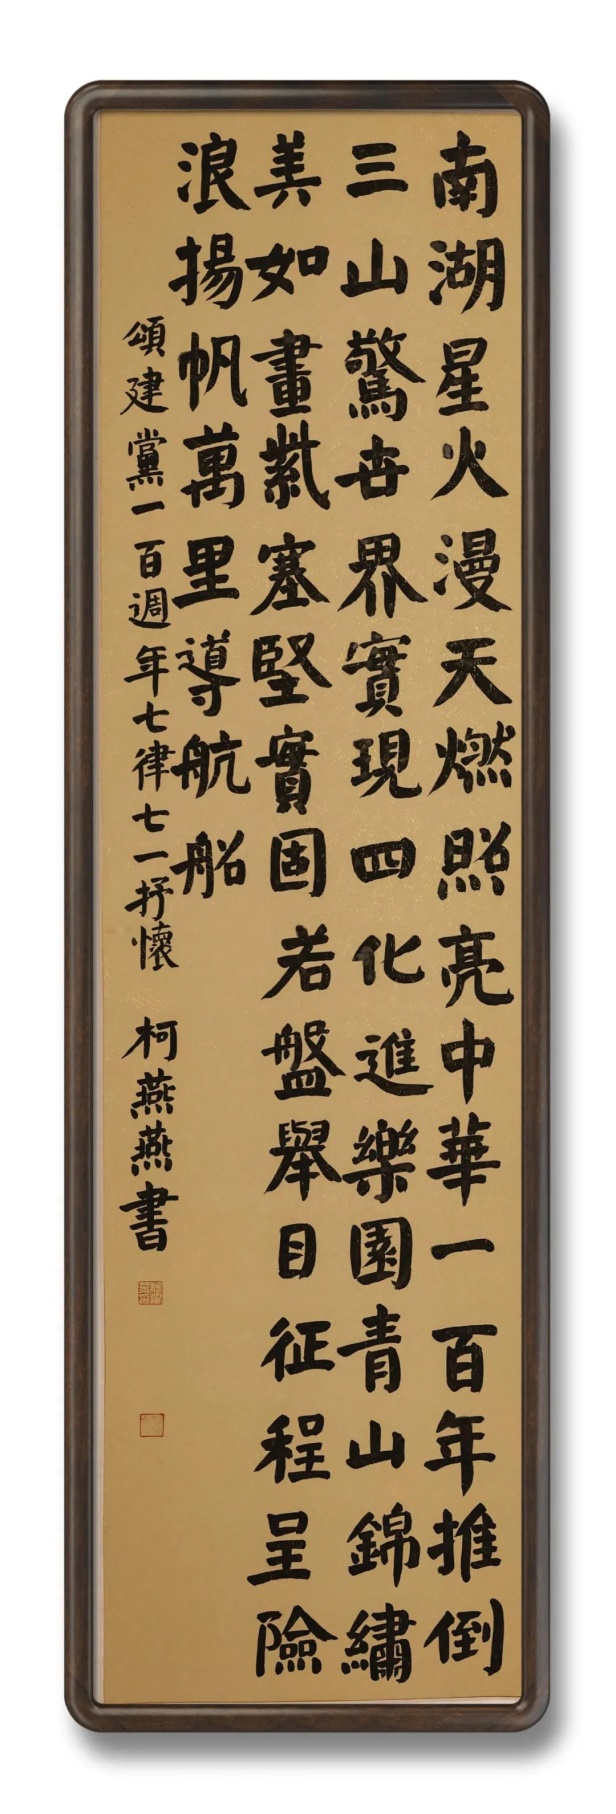 南湖星火漫天燃照亮中華一百年推倒
三山驚世界實現四化進樂園青山錦繡
美如畫紫塞堅實固若盤舉目征程呈險
浪揚帆萬里導航船
頌建黨一百週年七律七一抒懷 柯燕燕書